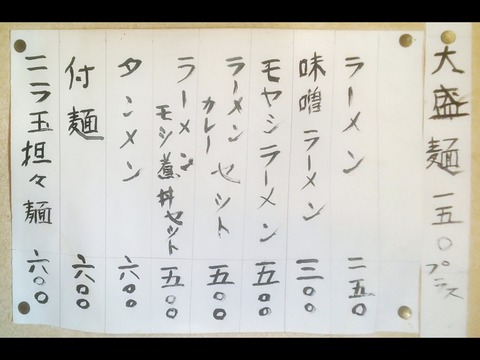 大盛麺 一五〇プラス
ラーメン 二五〇
味噌ラーメン 三〇〇
モヤシラーメン 五〇〇
ラーメンカレーセット 五〇〇
ラーメンモツ煮丼セット 五〇〇
タンメン 六〇〇
付麺 六〇〇
ニラ玉担々麺 六〇〇